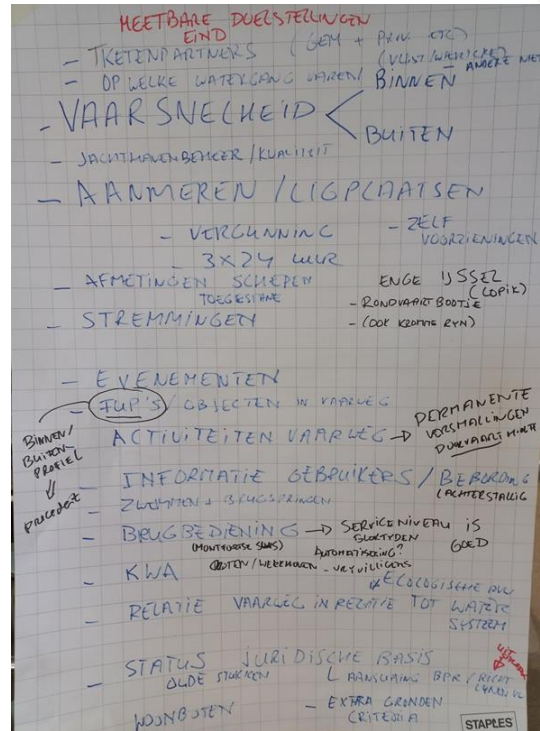 MEETBARE DOELSTELLINGEN
EIND
- KETENPARTNERS (GEM + PRIV. ETC)
- OP WELKE WATERGANG VAREN (VLIST/WIERICKE) ANDERE NIET
- VAARSNELHEID < BINNEN
BUITEN
- JACHTHAVENBEHEER/KWALITEIT
- AANMEREN/LIGPLAATSEN
- VERGUNNING
- ZELF VOORZIENINGEN
- 3x24 UUR
- AFMETINGEN SCHEPEN
TOEGESTANE
ENGE IJSSEL
(LOPIK)
- RONDVAARTBOOTJE
- (OOK KROMME RYN)
- STREMMINGEN
- EVENEMENTEN
- FLIP'S/OBJECTEN IN VAARWEG
BINNEN/
BUITEN
PROFIEL
⇓
precedent
ACTIVITEITEN VAARWEG → PERMANENTE
VERSMALLINGEN
DOORVAART
- INFORMATIE GEBRUIKERS/BEBORDING
(ACHTERSTALLIG
- ZWEMMEN + BRUGSPRINGEN
- BRUGBEDIENING → SERVICENIVEAU IS
GOED
(MONTFOORTSE SLUIS)
BLOKTYDEN
AUTOMATISERING?
- VRYWILLIGERS
- KWA
* ECOLOGISCHE
- RELATIE VAARWEG IN RELATIE TOT WATER
SYSTEEM
- STATUS JURIDISCHE BASIS
OUDE STUKKEN
AANSLUITING BPR/RICHT
LYNEN
WOONBOTEN
- EXTRA GRONDEN
CRITERIA
STAPLES